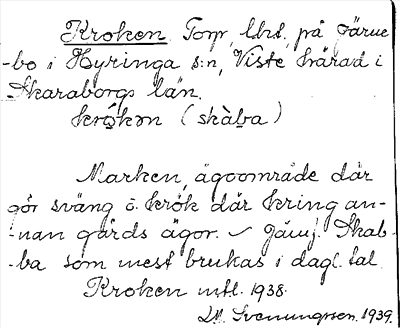 Kroken Torp, lht. på Järne
-bo i Hyringa s:n, Viste härad i
Skaraborgs län.
krọ̀kən (skàba)
Marken, ägoområde där
gör sväng o. krök där kring an-
-nan gårds ägor. Jämj. Skab-
-ba som mest brukas i dagl. tal.
Kroken mtl. 1938.
Svenungsson. 1939.